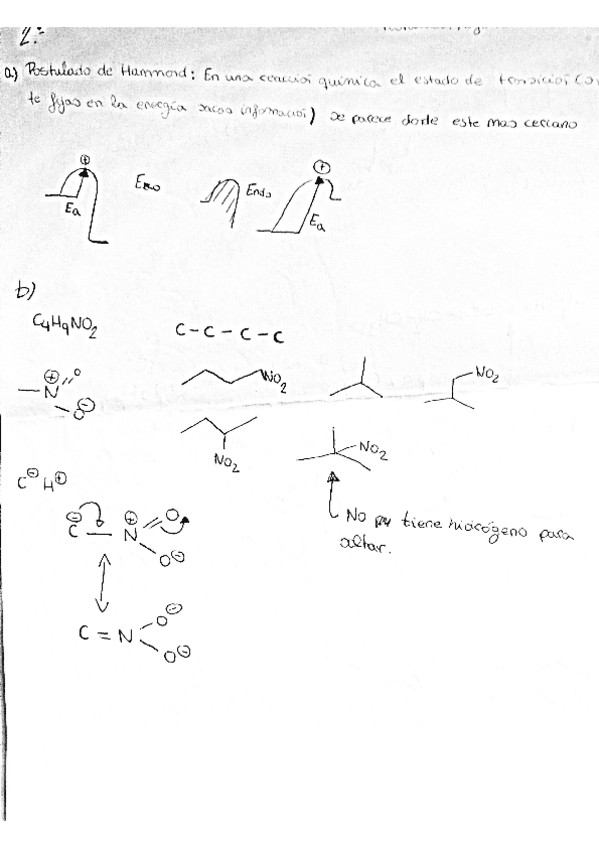 2.-
a) Postulado de Hammond: En una reacción química el estado de transición (si
te fijas en la energía sacas información) se parece donde este mas cercano
Exo
Endo
Ea
Ea
b)
C4H9NO2
C-C-C-C
N O
O
NO2
NO2
NO2
NO2
C⊖ H⊕
C — N O
O⊖
No pq tiene hidrógeno para
C = N O⊖
O⊖